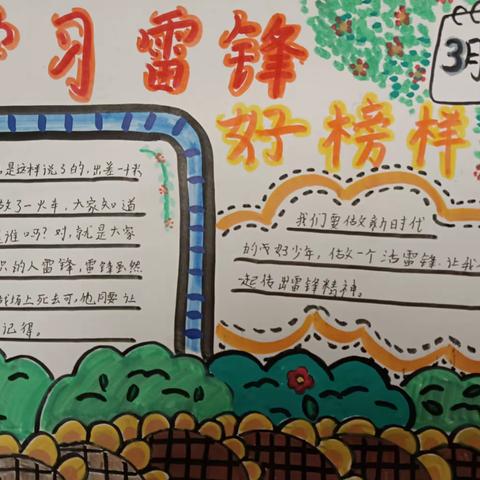 学习雷锋
好榜样
3月
是这样说了的,出差一米
做了一火车,大家知道
是谁吗?对,就是大家
识的人雷锋,雷锋虽然
战场上死去可,他同要让
记得。
我们要做新时代
的美好少年,做一个活雷锋.让我
一起传出雷锋精神。